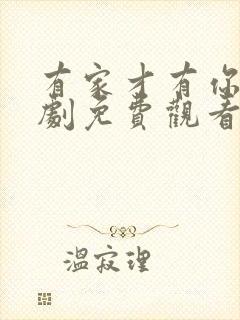 有家才有你
劇免費觀看
溫寂理